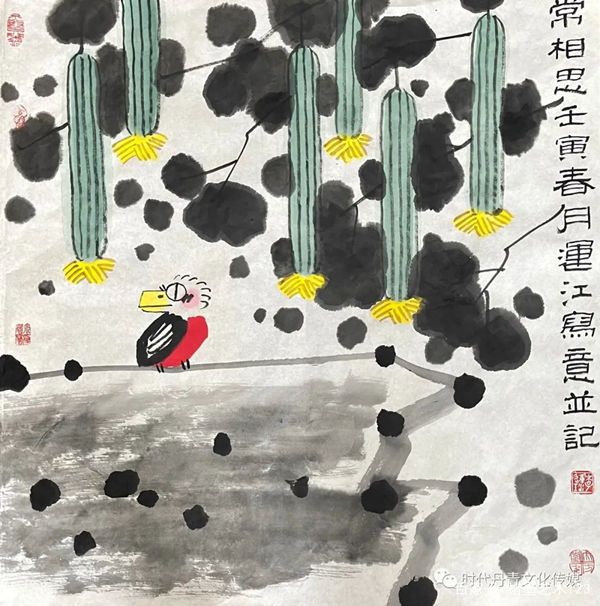 常相思壬寅春月運江寫意並記
时代丹青文化传媒